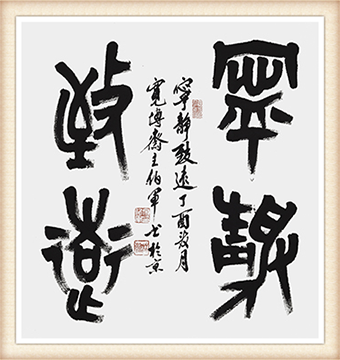 寧靜
致遠
寧靜致遠丁酉月
寬博齋主伯軍书於京